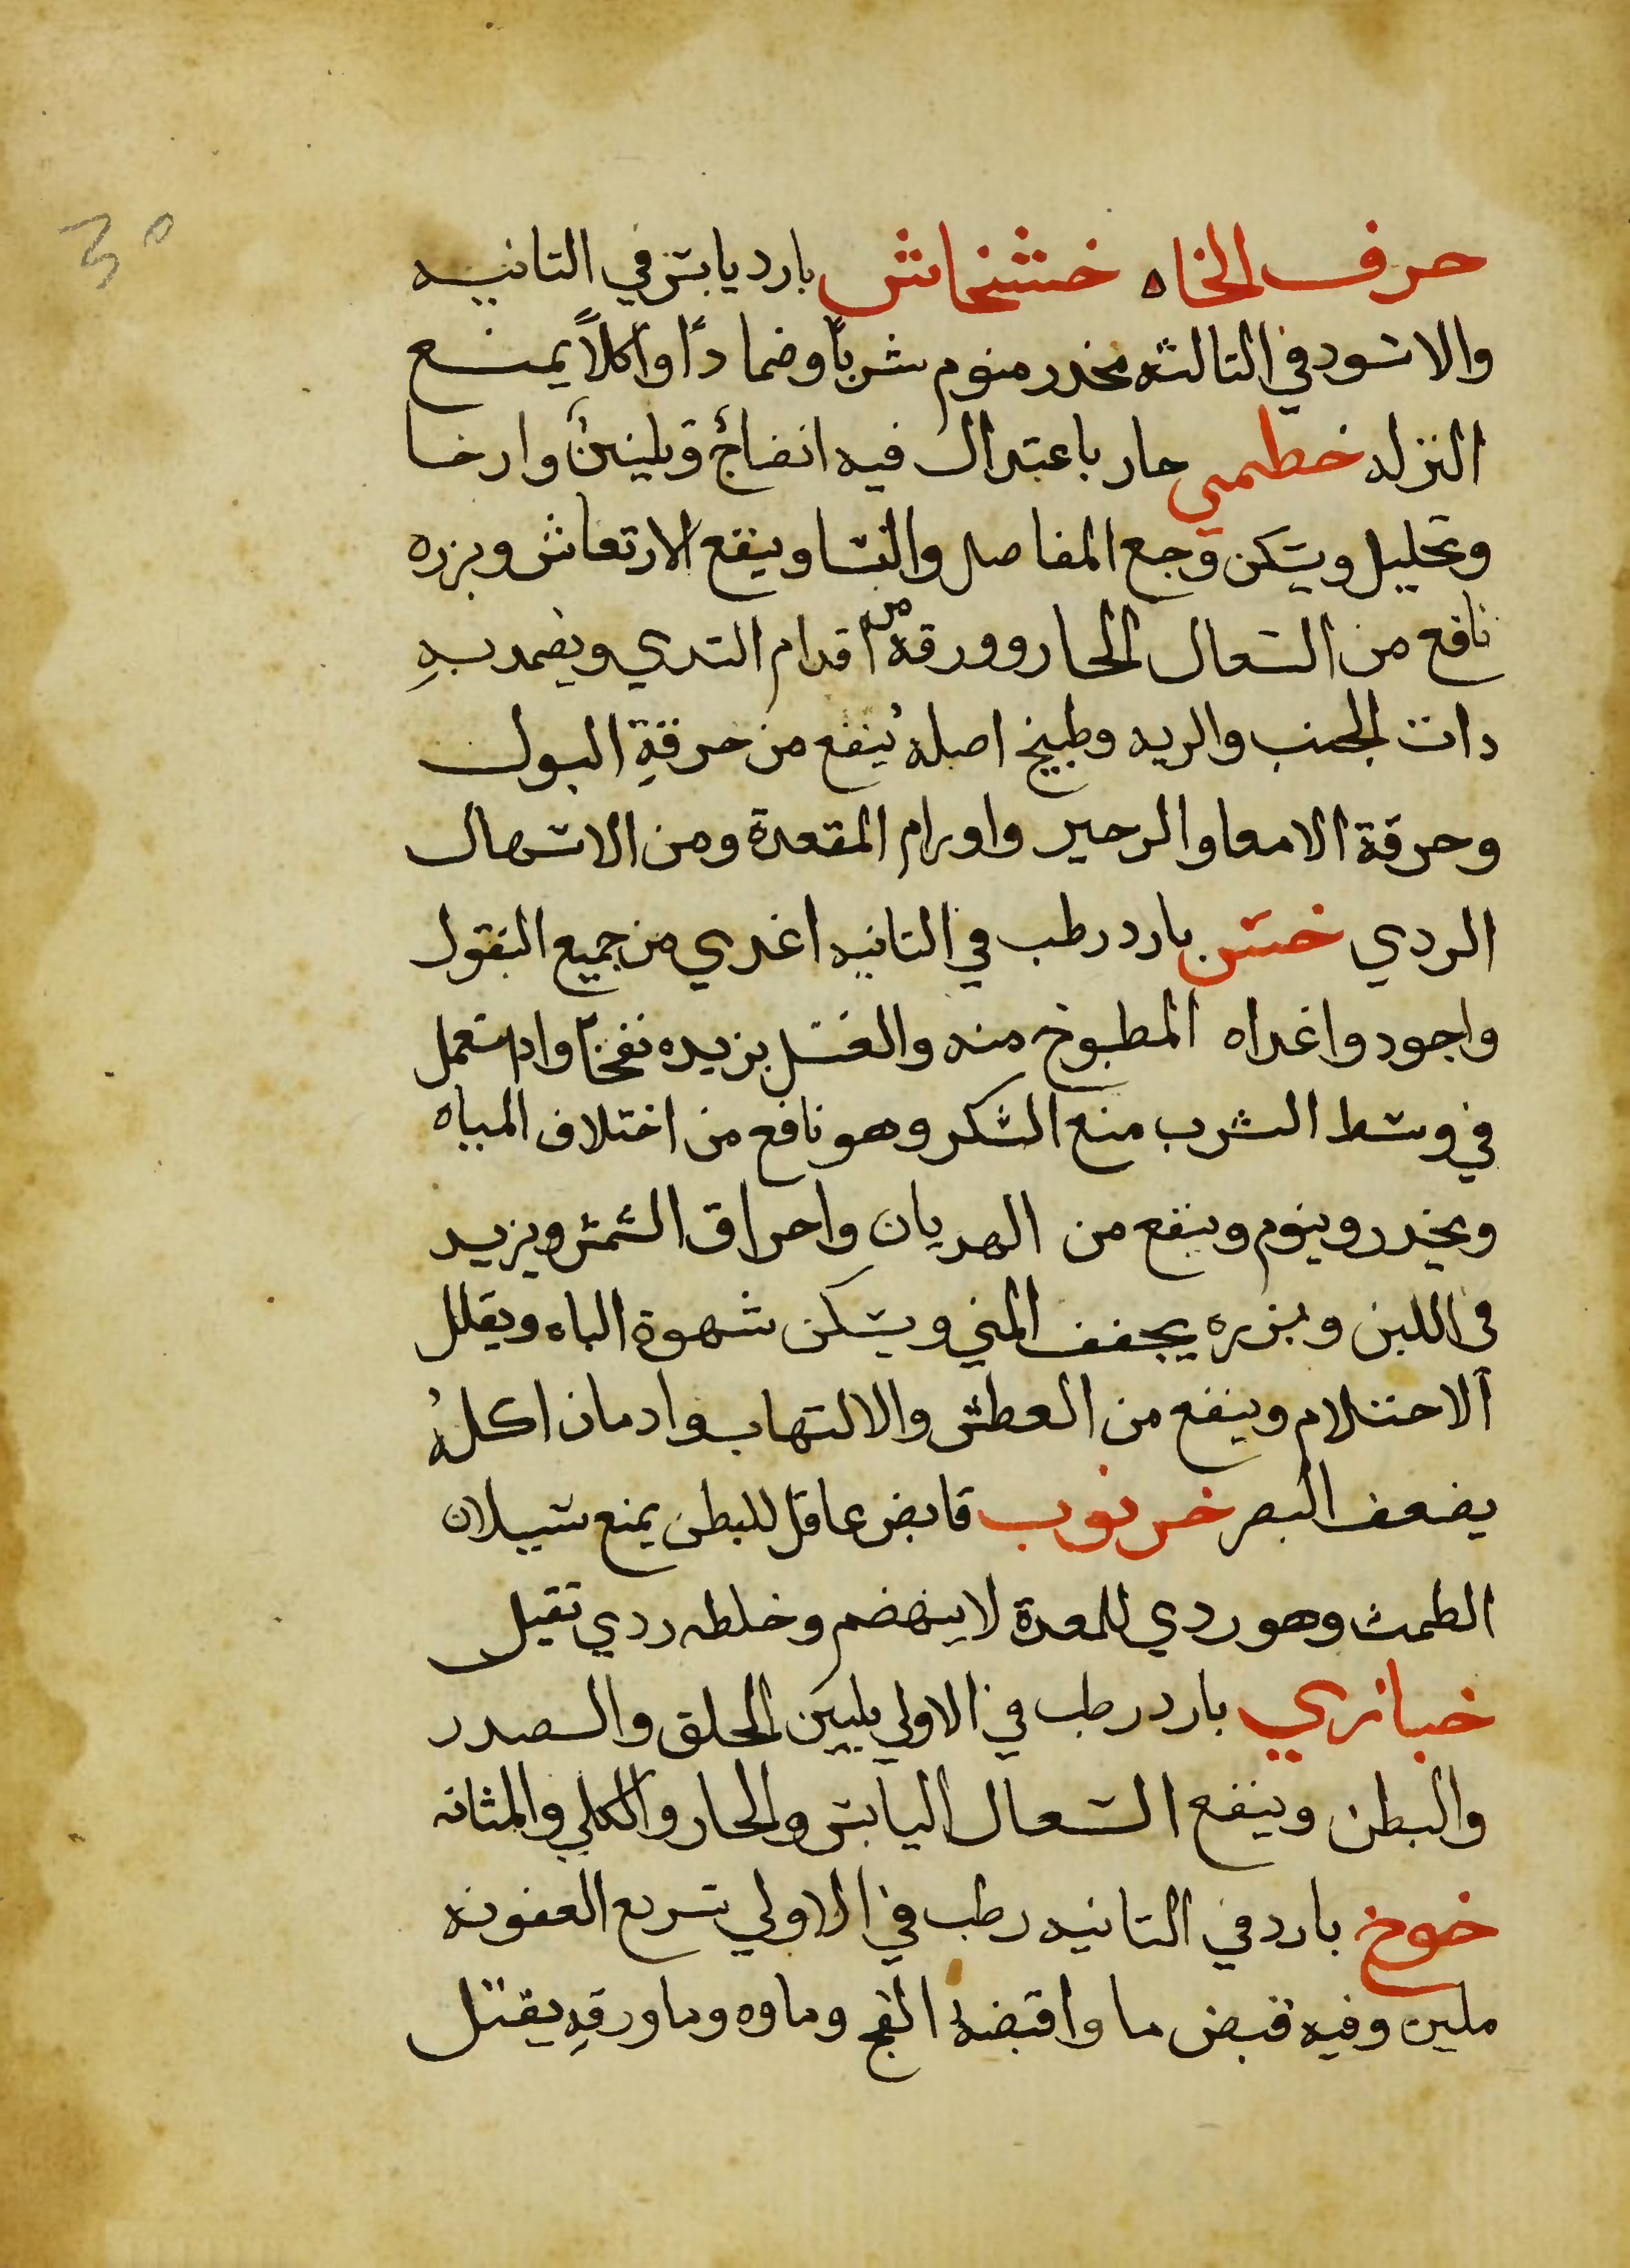 30
حرف الخاه خشخاش بارد يابس في التانيه
والاسود في التالثه مخدر منوم شرباً وضماداً واكلاً يمنع
النزله خطمي حار باعتدال فيه انضاجٌ وتليينٌ وارخا
وتحليل ويسكن وجع المفاصل والنسا وينفع الارتعاش وبزره
نافع من السعال الحار وورقه من اقدام التدي ويضمد بهِ
دات الجنب والريه وطبيخ اصله يُنفع من حرقةِ البول
وحرقة الامعا والزحير واورام المقعدة ومن الاسهال
الردي خس بارد رطب في التانيه اغدي من جميع البقول
واجود واغداه المطبوخ منه والغسل يزيده نفخاً وادا استعمل
في وسط الشرب منع السكر وهو نافع من اختلاف المياه
ويخدر وينوم وينفع من الهديان واحراق الشمس ويزيد
في اللبن وبزره يجفف المني ويسكن شهوة الباه ويقلل
الاحتلام وينفع من العطش والالتهاب وادمان اكلهُ
يضعف البصر خرنوب قابض عاقل للبطن يمنع سيلان
الطمث وهو ردي للمعدة لا ينهضم وخلطه ردي تقيل
خبازي بارد رطب في الاولي يليّن الحلق والصدر
والبطن وينفع السعال اليابس والحار والكلي والمثانه
خوخ بارد في التانيه رطب في الاولي سريع العفونه
ملين وفيه قبض ما واقبضه الفج وماوه وما ورقهِ يقتل